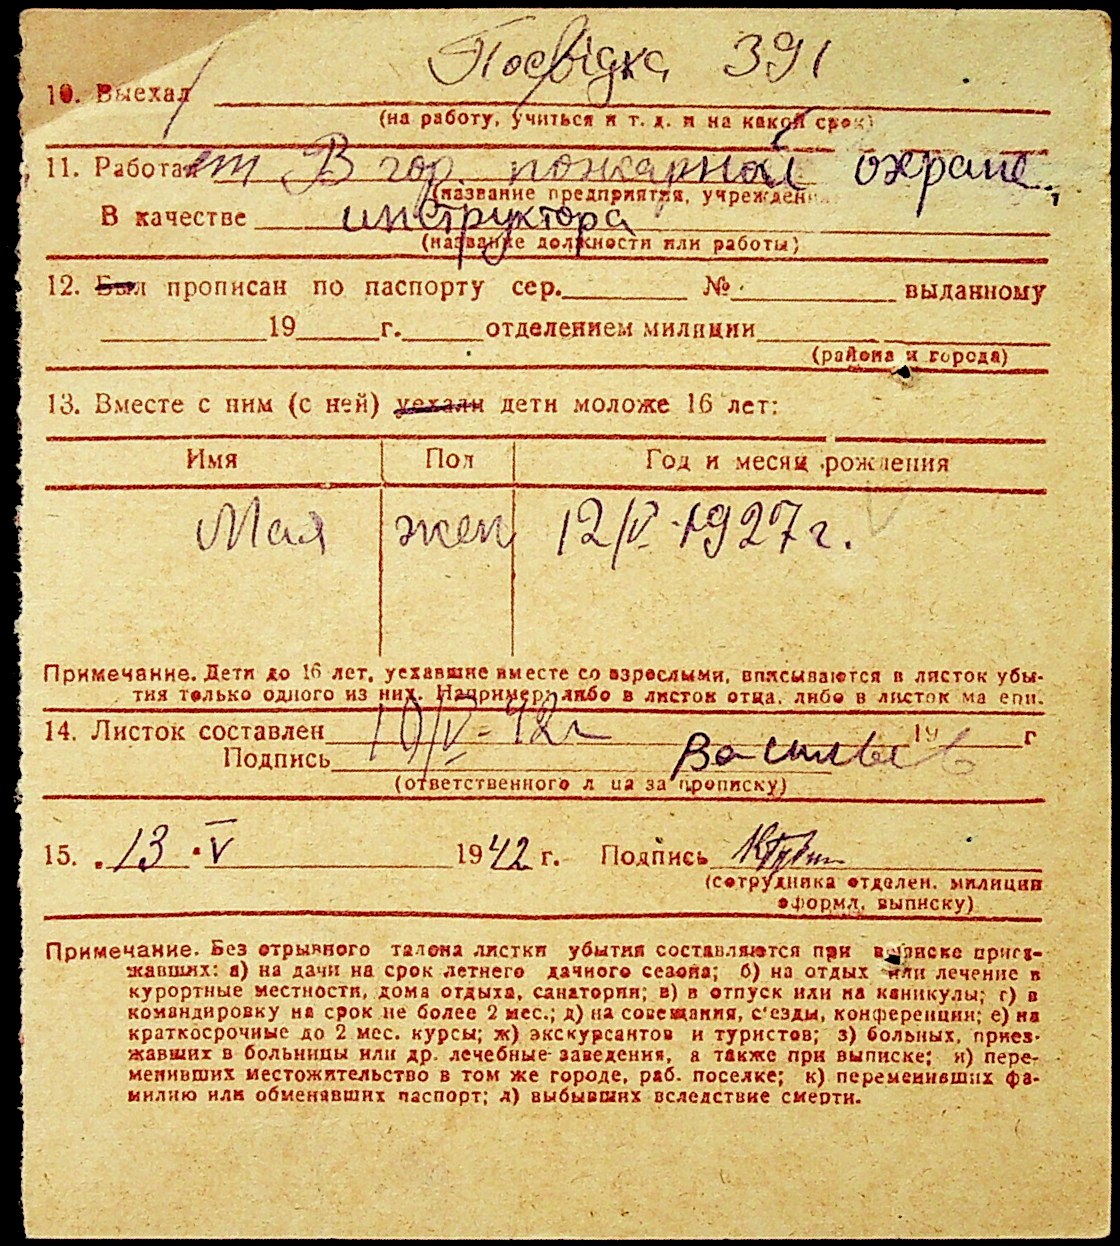 Посвідка 391
10. Выехал
(на работу, учиться и т. д. и на какой срок)
11. Работает В гор. пожарной охране,
(название предприятия, учреждения
В качестве инструктора
(название должности или работы)
12. Был прописан по паспорту сер. № выданному
19 г. отделением милиции
(района и города)
13. Вместе с ним (с ней) уехали дети моложе 16 лет:
Имя Пол Год и месяц рождения
Мая жен 12/V-1927 г.
Примечание. Дети до 16 лет, уехавшие вместе со взрослыми, вписываются в листок убы-
тия только одного из них. Например: либо в листок отца, либо в листок ма ери.
14. Листок составлен 10/V-42 г 19 г
Подпись Васильев
(ответственного л ца за прописку)
15. 13.V 1942 г. Подпись
(сотрудника отделен. милиции
оформл. выписку)
Примечание. Без отрывного талона листки убытия составляются при выписке приез-
жавших: а) на дачи на срок летнего дачного сезона; б) на отдых или лечение в
курортные местности, дома отдыха, санатории; в) в отпуск или на каникулы; г) в
командировку на срок не более 2 мес.; д) на совещания, с'езды, конференции; е) на
краткосрочные до 2 мес. курсы; ж) экскурсантов и туристов; з) больных, приез-
жавших в больницы или др. лечебные заведения, а также при выписке; и) пере-
менивших местожительство в том же городе, раб. поселке; к) переменивших фа-
милию или обменявших паспорт; л) выбывших вследствие смерти.